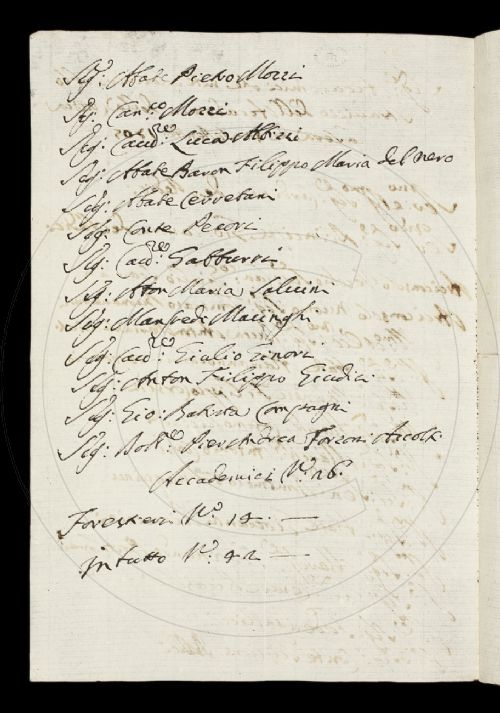 Sig: Abate Pietro Mozzi
Sig: Can:co Mozzi
Sig: Cav:re Luca Albizi
Sig: Abate Baron Filippo Maria del nero
Sig: Abate Cerretani
Sig: Conte Pecori
Sig: Cav:re Gabburri
Sig: Anton Maria Salvini
Sig: Manfredi Macinghi
Sig: Cav:re Giulio Ginori
Sig: Anton Filippo Giudici
Sig: Gio: Batista Compagni
Sig: Dott:re Pier Andrea Forzoni Accolti
Accademici N.o 26.
Forestieri N.o
in tutto N.o